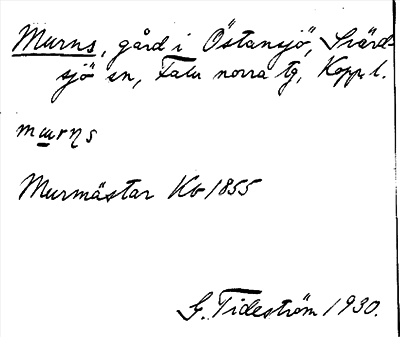 Murns, gård i Östansjö, Svärd-
sjö sn, Falu norra tg, Kopp. l.
mɯrηs
Murmästar Kb 1855
G. Tideström 1930.